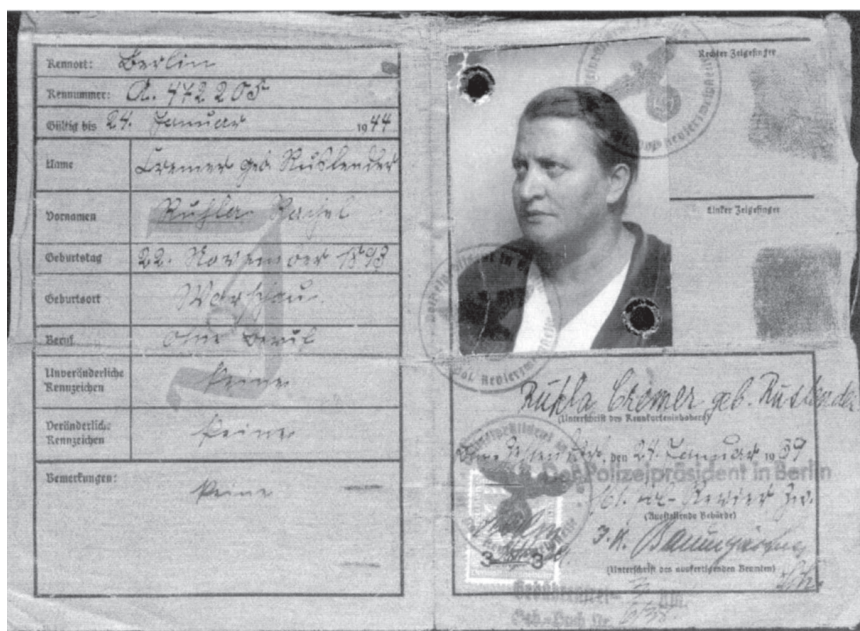 Kennort: Berlin
Kennummer: A. 472205
Gültig bis 24. Januar 1944
Name Cremer geb. Ruslender
Vornamen Ruchla
Geburtstag 22. November 1893
Geburtsort Warschau
Beruf ohne Beruf
Unveränderliche
Kennzeichen keine
Veränderliche
Kennzeichen keine
Bemerkungen: keine
J
Rechter Zeigefinger
Linker Zeigefinger
Cremer geb.
(Unterschrift des Kennkarteninhabers)
den 24. Januar 1939
Der Polizeipräsident in Berlin
(Ausstellende Behörde)
(Unterschrift des ausfertigenden Beamten)
3 3